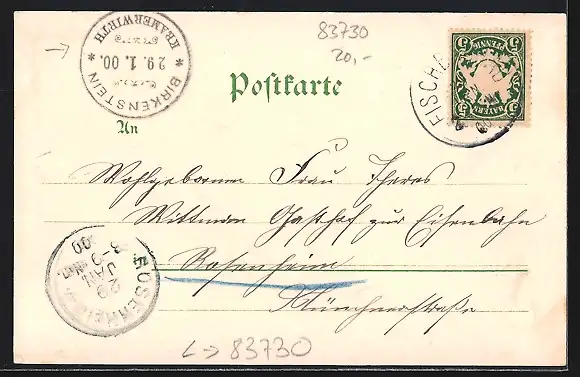 83730
20,-
KRAMERWIRTH
29.1.00.
* BIRKENSTEIN *
Postkarte
FISCHB
5 PFENNIG 5
BAYERN
An
Wohlgeborenen Frau Theres
Wittmann Gasthof zur Eisenbahn
Rosenheim
Münchnerstraße
ROSENHEIM
29
JAN
8-9
00
83730